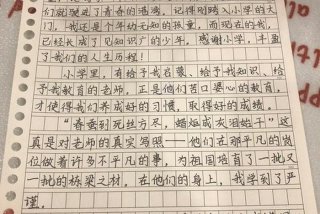 们就驶进了青春的港湾，记得刚跨入小学的大
门，我还是个年幼无知的孩童，而现在的我，
已经长成了见知识广的少年。感谢小学，丰盈
了我们的人生历程！
小学里，有给予我启蒙、给予我知识、给
予我教育的老师，正是他们苦口婆心的教育，
才使得我们养成好的习惯，取得好的成绩。
“春蚕到死丝方尽，蜡炬成灰泪始干”这
真是对老师的真实写照——他们在那平凡的岗
位做着许多不平凡的事，为祖国培育了一批又
一批的栋梁之材。在他们的身上，我学到了严
谨。